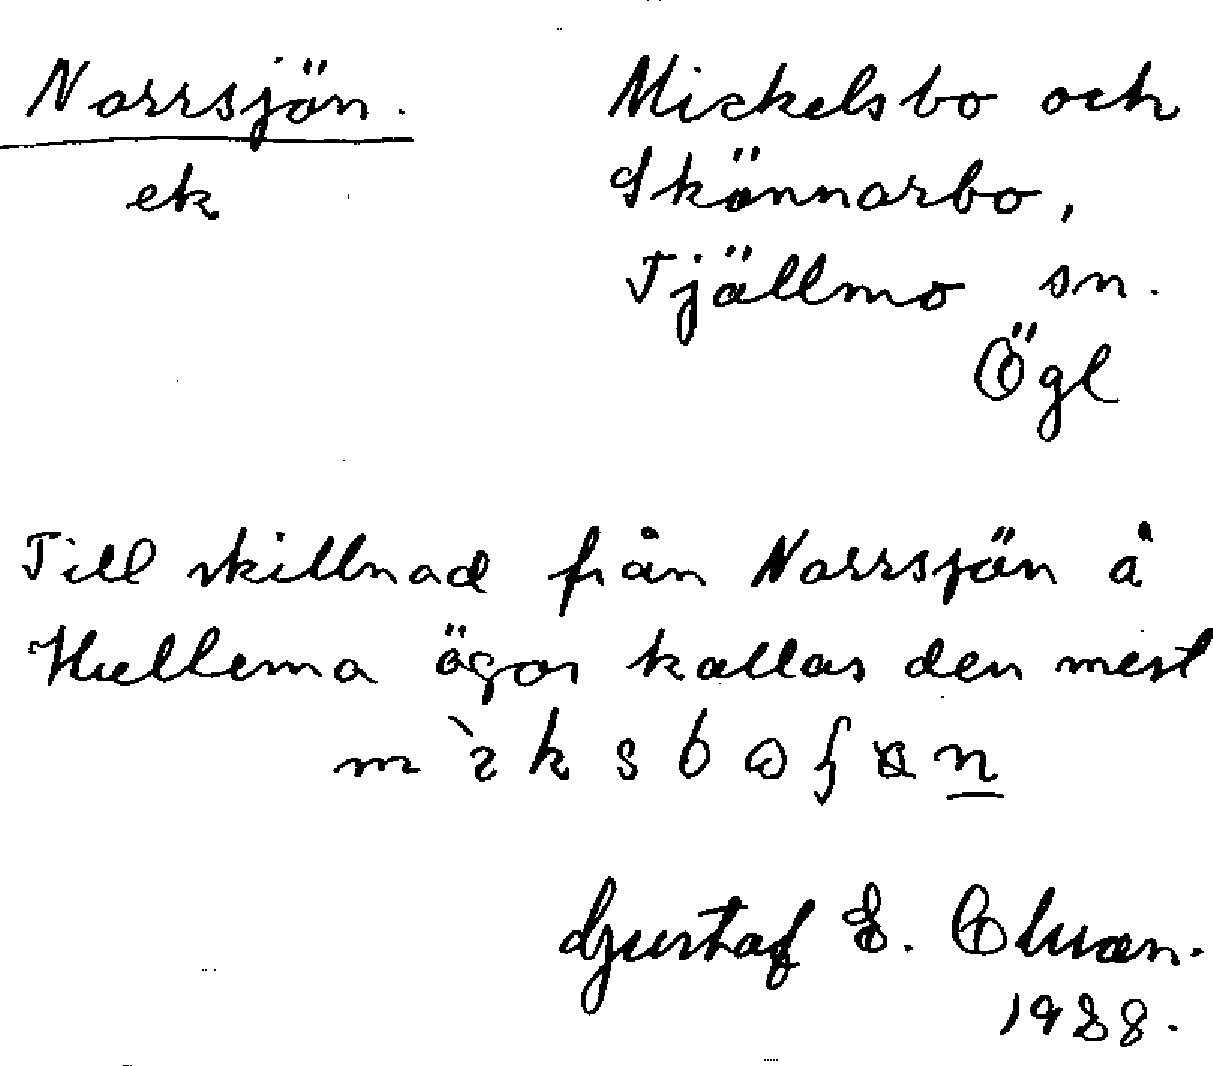 Norrsjön.
ek
Mickelsbo och
Skönnarbo,
Tjällmo sn.
Ögl
Till skillnad från Norrsjön å
Hällerna ägor kallas den mest
Gustaf E. Oluan.
1938.